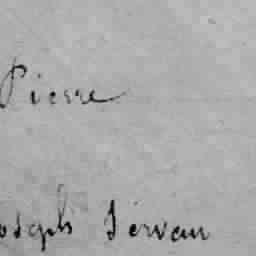 Pierre
oseph Servan